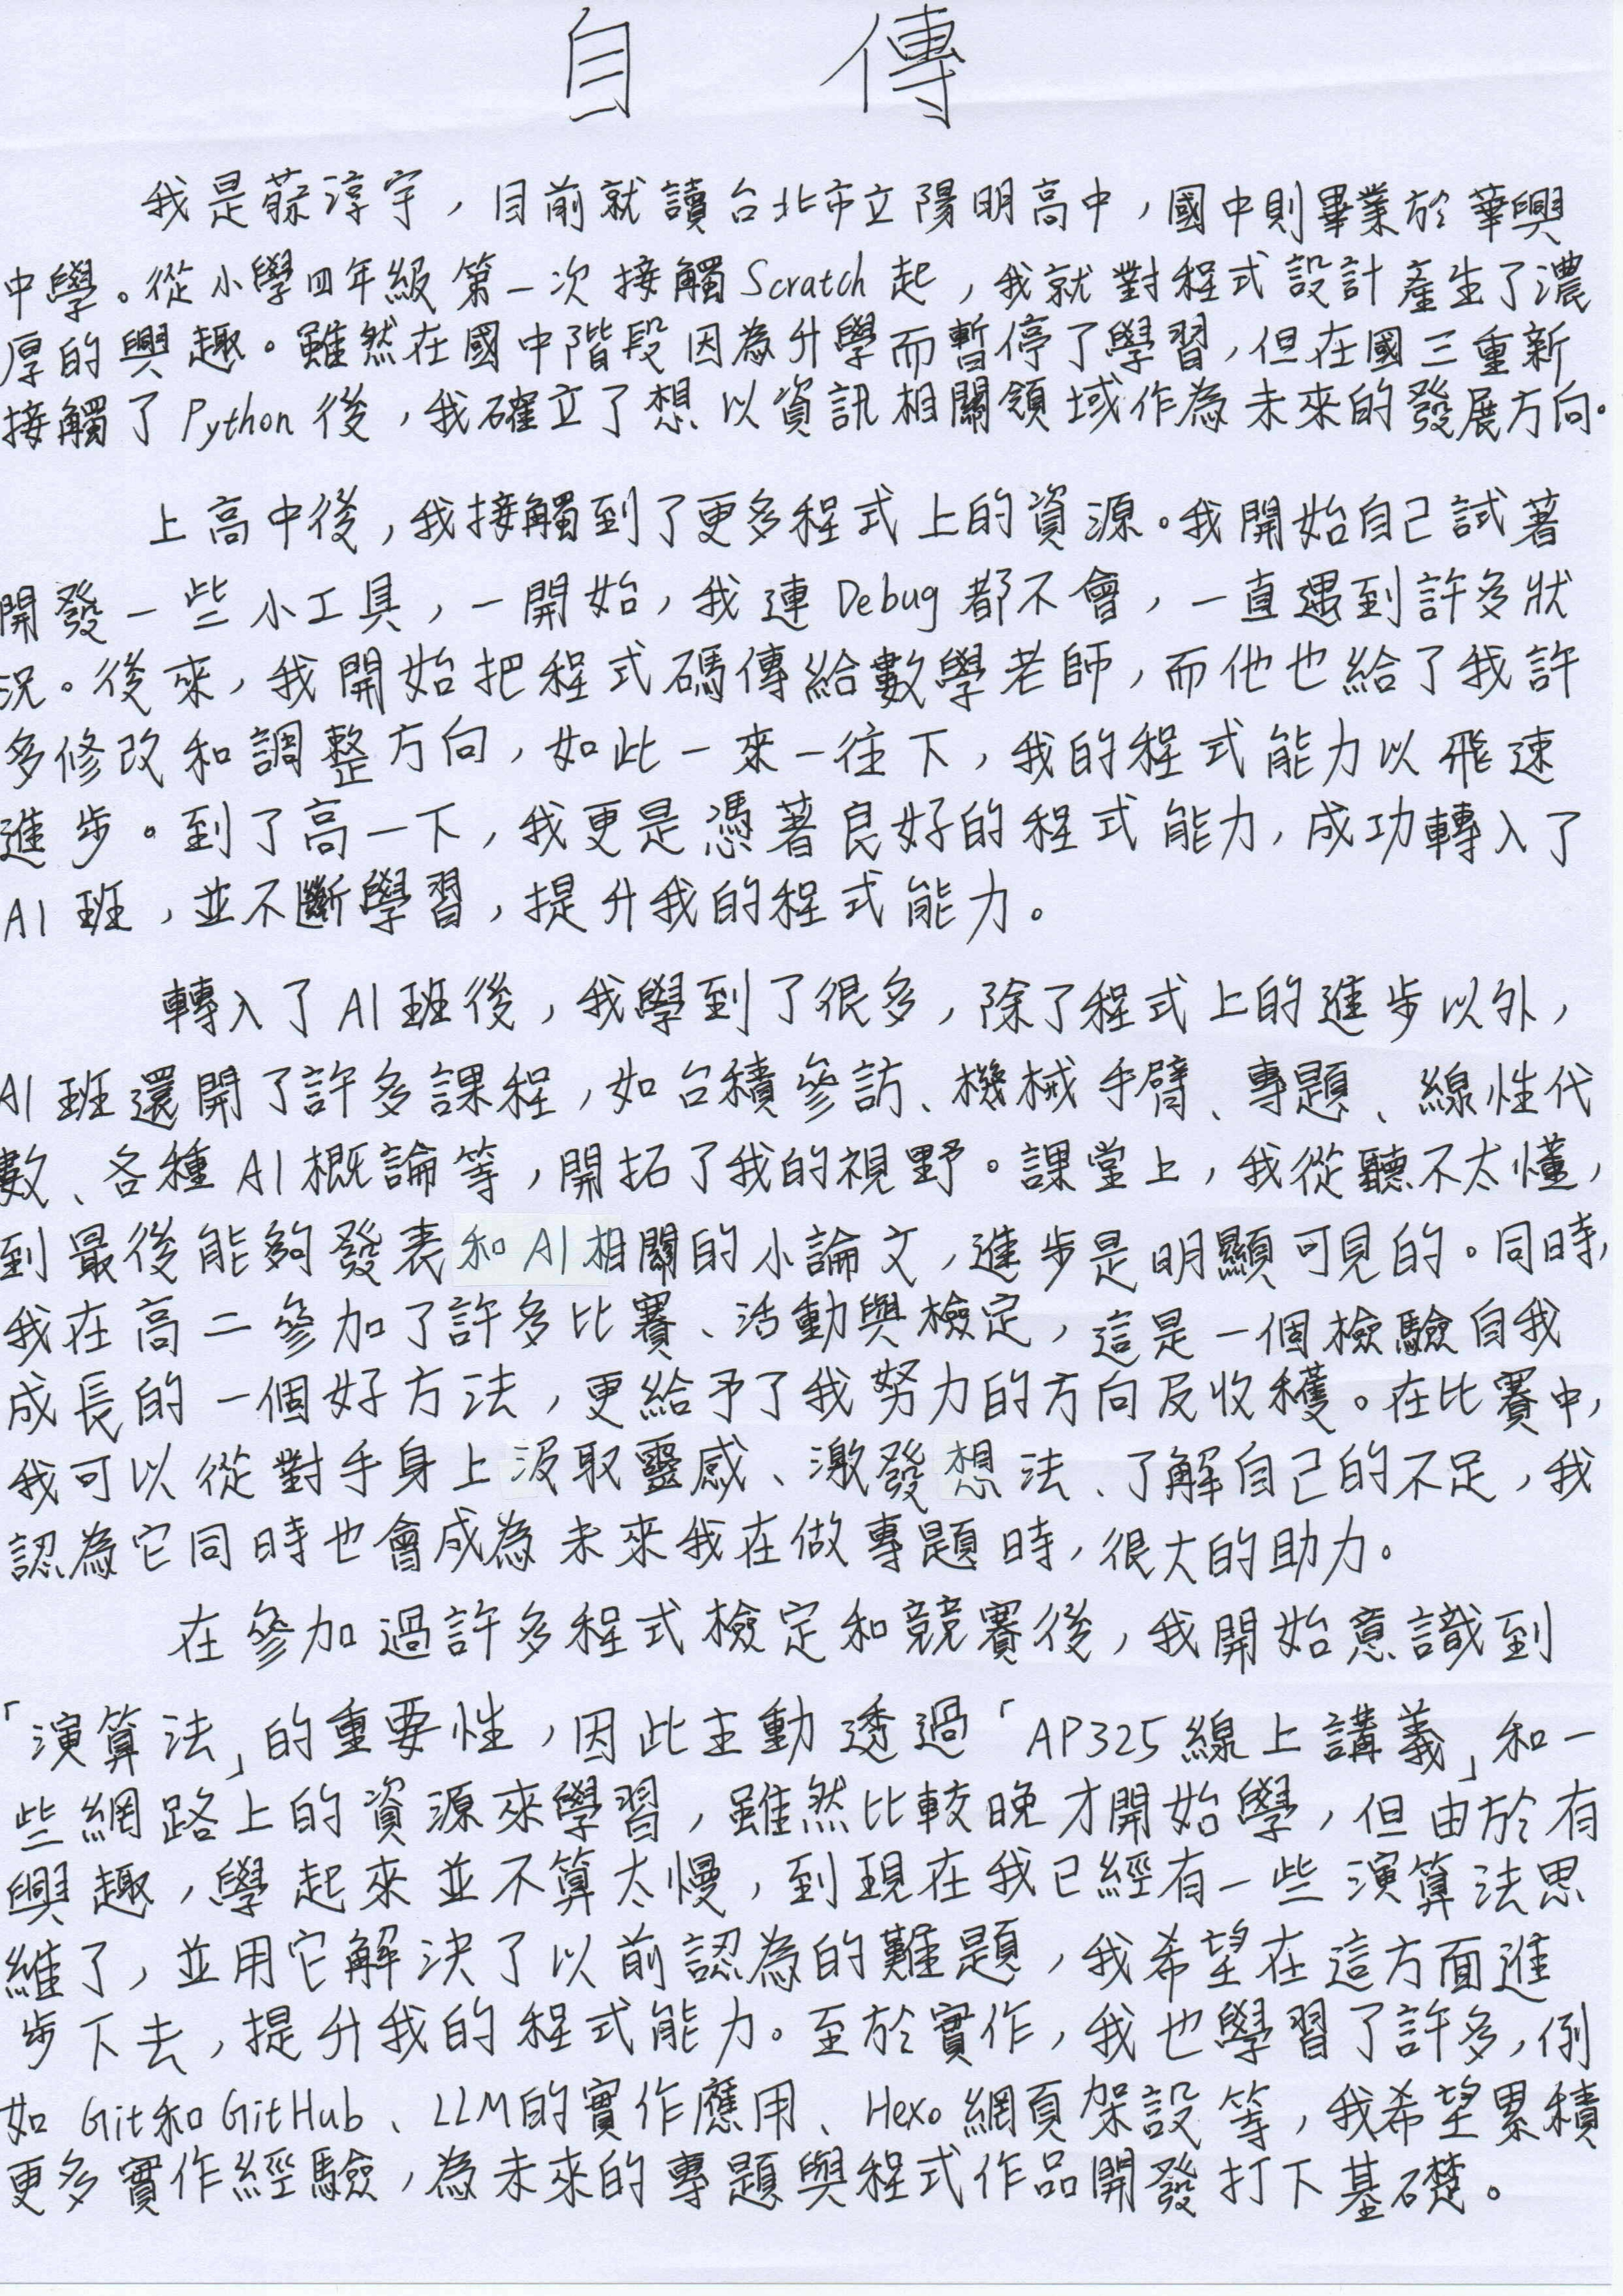 自傳
我是蔡淳宇，目前就讀台北市立陽明高中，國中則畢業於華興
中學。從小學四年級第一次接觸Scratch起，我就對程式設計產生了濃
厚的興趣。雖然在國中階段因為升學而暫停了學習，但在國三重新
接觸了Python後，我確立了想以資訊相關領域作為未來的發展方向。
上高中後，我接觸到了更多程式上的資源。我開始自己試著
開發一些小工具，一開始，我連Debug都不會，一直遇到許多狀
況。後來，我開始把程式碼傳給數學老師，而他也給了我許
多修改和調整方向，如此一來一往下，我的程式能力以飛速
進步。到了高一下，我更是憑著良好的程式能力，成功轉入了
AI班，並不斷學習，提升我的程式能力。
轉入了AI班後，我學到了很多，除了程式上的進步以外，
AI班還開了許多課程，如台積參訪、機械手臂、專題、線性代
數、各種AI概論等，開拓了我的視野。課堂上，我從聽不太懂，
到最後能夠發表和AI相關的小論文，進步是明顯可見的。同時，
我在高二參加了許多比賽、活動與檢定，這是一個檢驗自我
成長的一個好方法，更給予了我努力的方向及收穫。在比賽中，
我可以從對手身上汲取靈感、激發想法、了解自己的不足，我
認為它同時也會成為未來我在做專題時，很大的助力。
在參加過許多程式檢定和競賽後，我開始意識到
「演算法」的重要性，因此主動透過「AP325線上講義」和一
些網路上的資源來學習，雖然比較晚才開始學，但由於有
興趣，學起來並不算太慢，到現在我已經有一些演算法思
維了，並用它解決了以前認為的難題，我希望在這方面進
步下去，提升我的程式能力。至於實作，我也學習了許多，例
如Git和GitHub、LLM的實作應用、Hexo網頁架設等，我希望累積
更多實作經驗，為未來的專題與程式作品開發打下基礎。